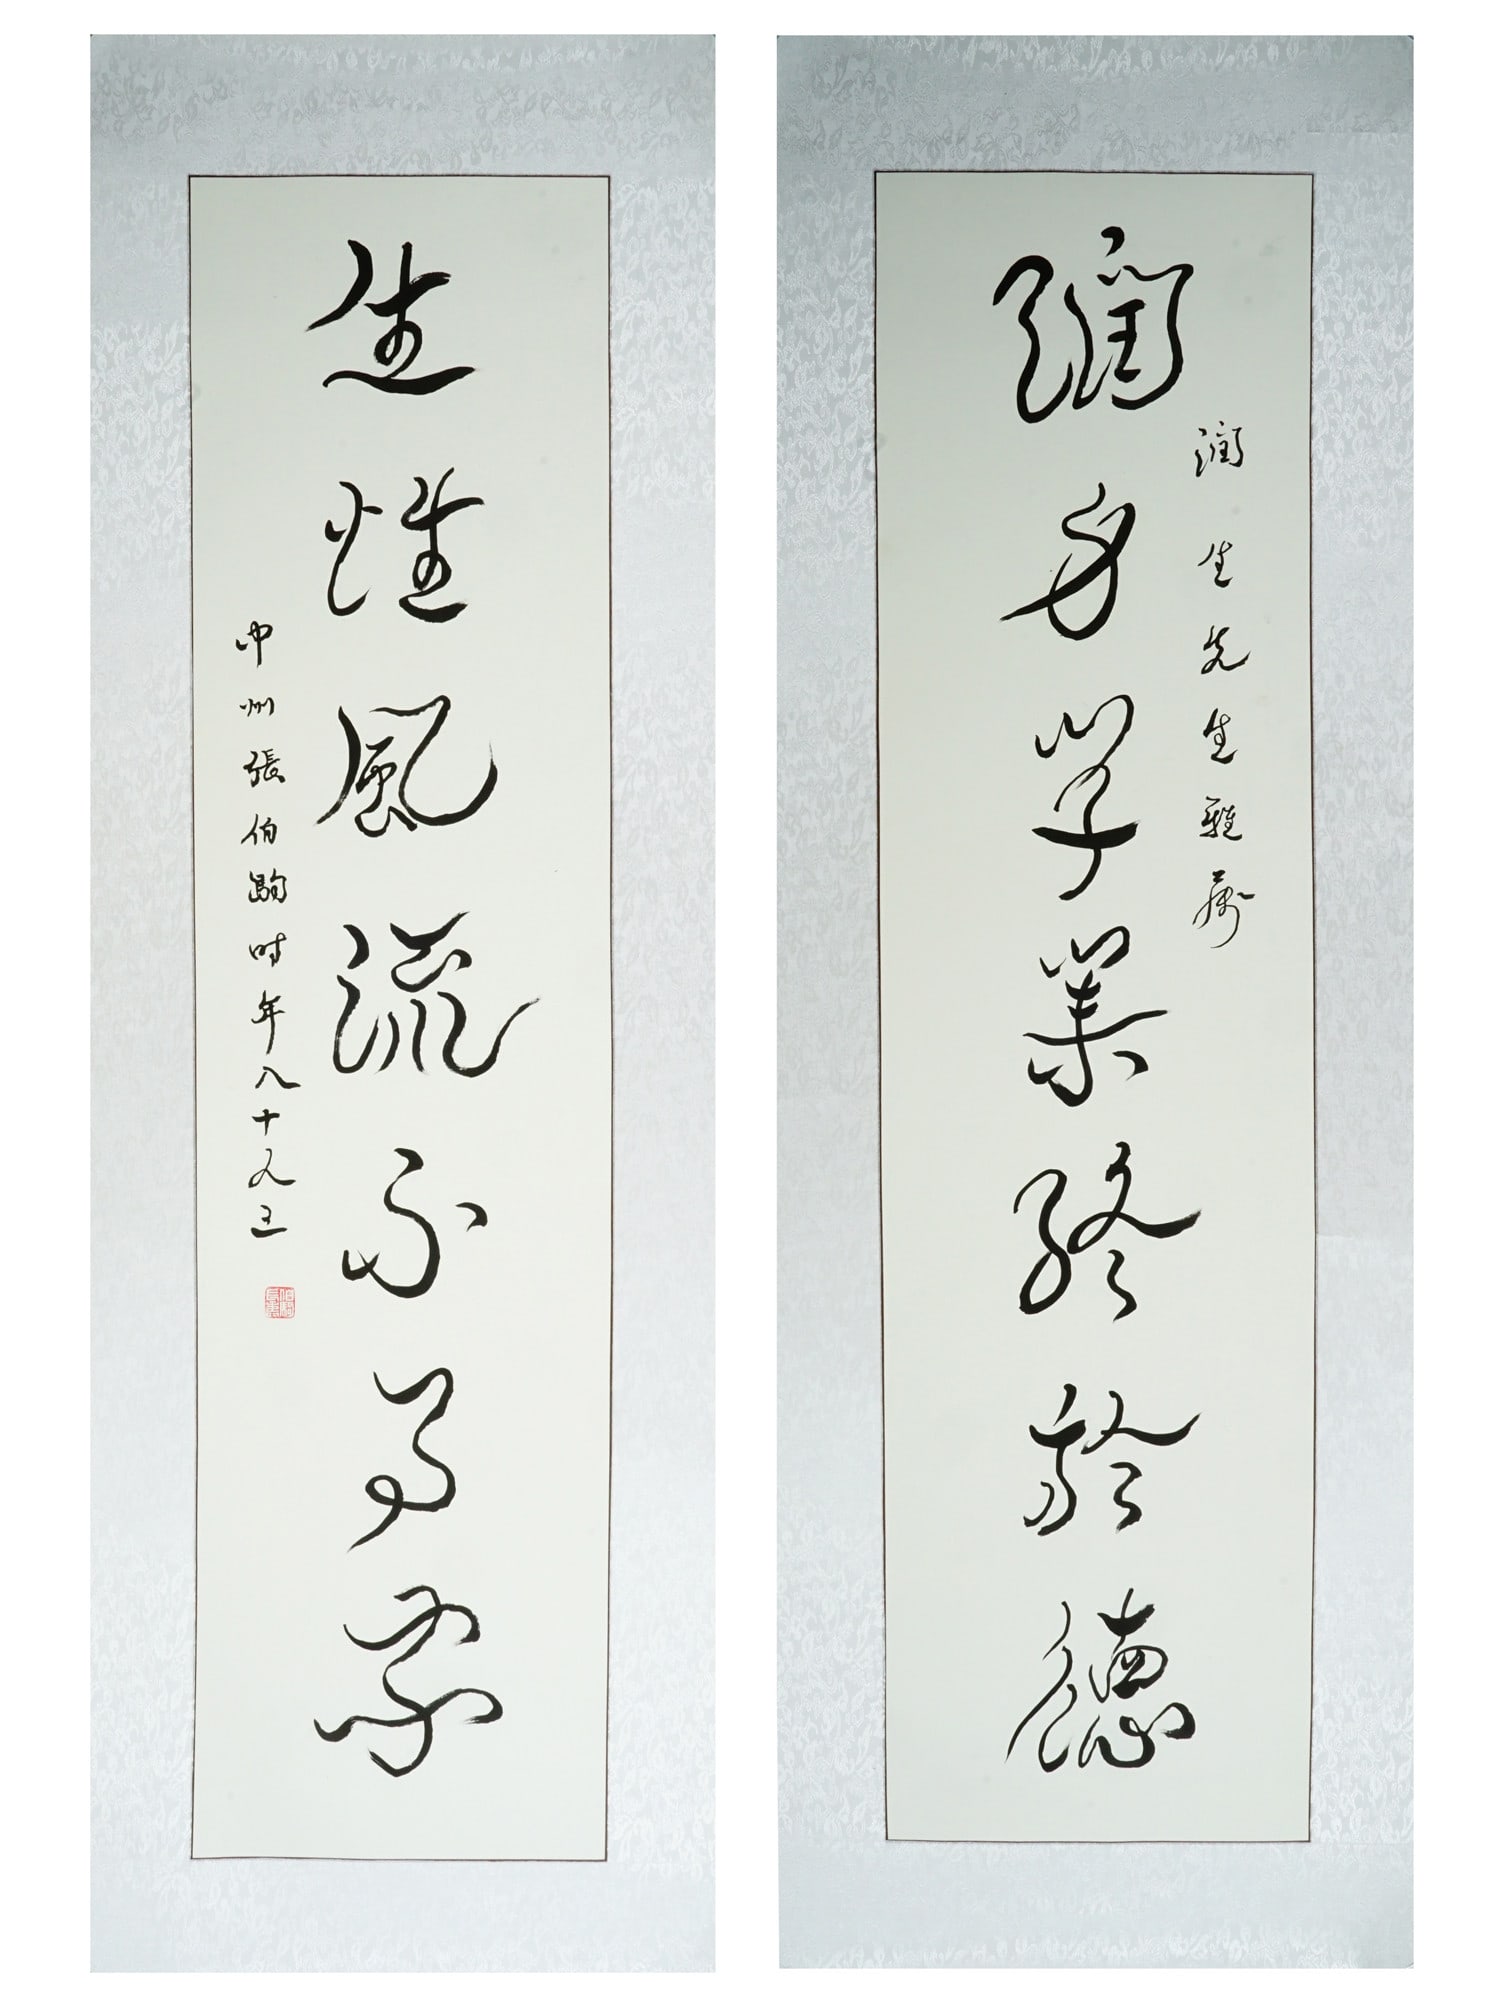 潤身學業終於德
潤生先生雅屬
生性風流不為家
中州張伯駒時年八十又